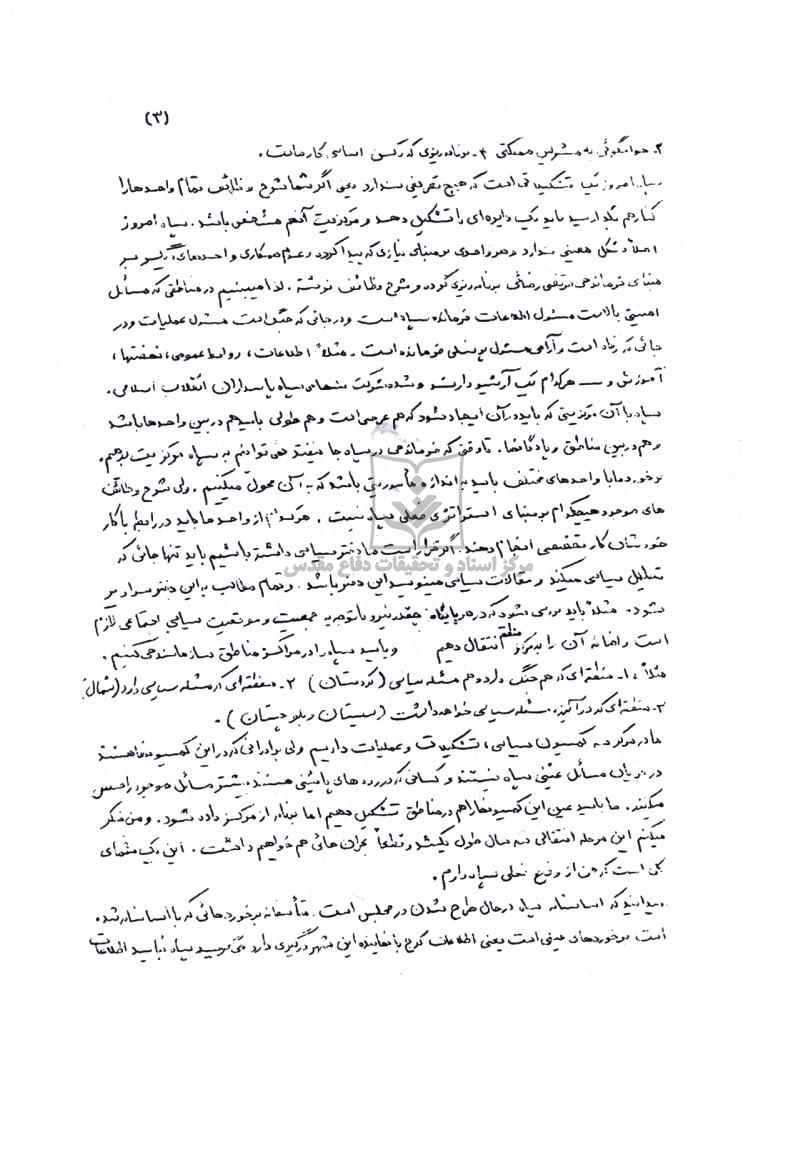 (۳)
۲- جوابگوئی به مشی مملکتی ۳- برنامه‌ریزی که رکن اساسی کار ماست .
سپاه امروز یک تشکیلاتی است که هیچ تعریفی ندارد یعنی اگر شما شرح وظائف تمام واحدها را
کنار هم بگذارید باید یک دایره‌ای را تشکیل دهد و مرکزیت آنهم مشخص باشد . سپاه امروز
اصلاً شکل معینی ندارد و هر واحدی بر مبنای نیازی که پیدا کرده و عدم همکاری واحدهای دیگر و بر
مبنای فرماندهی مرتضی رضائی برنامه‌ریزی کرده و شرح وظائف نوشته . لذا میبینیم در مناطقی که مسائل
امنیتی بالاست مسئول اطلاعات فرمانده سپاه است و در جائی که جنگ است مسئول عملیات و در
جائی که رفاه است و آرامی مسئول پرسنلی فرمانده است . مثلاً اطلاعات ، روابط عمومی ، نهضتها ،
آموزش و ـــ هر کدام یک آرشیو دارند و شده شرکت سهامی سپاه پاسداران انقلاب اسلامی .
سپاه با آن مرکزیتی که باید در آن ایجاد شود که هم عرضی است و هم طولی باید هم در بین واحدها باشد
و هم در بین مناطق و پادگانها . تا وقتی که فرماندهی در سپاه جا نیفتد نمی‌توانیم به سپاه مرکزیت بدهیم .
برخورد ما با واحدهای مختلف باید به اندازه مأموریتی باشد که به آن محول میکنیم . ولی شرح وظائف
های موجود هیچکدام بر مبنای استراتژی فعلی سپاه نیست . هر کدام از واحدها باید در رابطه با کار
خودشان کار تخصصی انجام دهند . اگر قرار است ما دفتر سیاسی داشته باشیم باید تنها جائی که
تحلیل سیاسی میکند و مقالات سیاسی مینویسد این دفتر باشد . و تمام مطالب به این دفتر سرازیر
شود . مثلاً باید بررسی شود که در هر پایگاه چقدر نیرو با توجه به جمعیت و موقعیت سیاسی اجتماعی لازم
است و اضافه آن را به مرکز منطقه انتقال دهیم و باید سپاه را در مراکز مناطق سازماندهی کنیم .
مثلاً ، ۱- منطقه‌ای که هم جنگ دارد و هم مسئله سیاسی (کردستان) ۲- منطقه‌ای که مسئله سیاسی دارد (شمال)
۳- منطقه‌ای که در آینده مسئله سیاسی خواهد داشت (سیستان و بلوچستان) .
ما در مرکز سه کمیسیون سیاسی ، تشکیلات و عملیات داریم ولی برادرانی که در این کمیسیونها هستند
در جریان مسائل عینی سپاه نیستند و کسانی که در رده های پائینی هستند بیشتر مسائل موجود را حس
میکنند . ما باید عین این کمیسیونها را هم در مناطق تشکیل دهیم اما بها از مرکز داده شود . و من فکر
میکنم این مرحله انتقالی سه سال طول بکشد و قطعاً بحران هائی هم خواهیم داشت . این یک شمای
کلی است که من از وضع فعلی سپاه دارم .
میدانید که اساسنامه سپاه در حال طرح شدن در مجلس است . متأسفانه برخوردهائی که با اساسنامه شده
است برخوردهای عینی است یعنی اطلاعات کرج با نماینده این شهر درگیری دارد می‌نویسد سپاه نباید اطلاعات
مرکز اسناد و تحقیقات دفاع مقدس